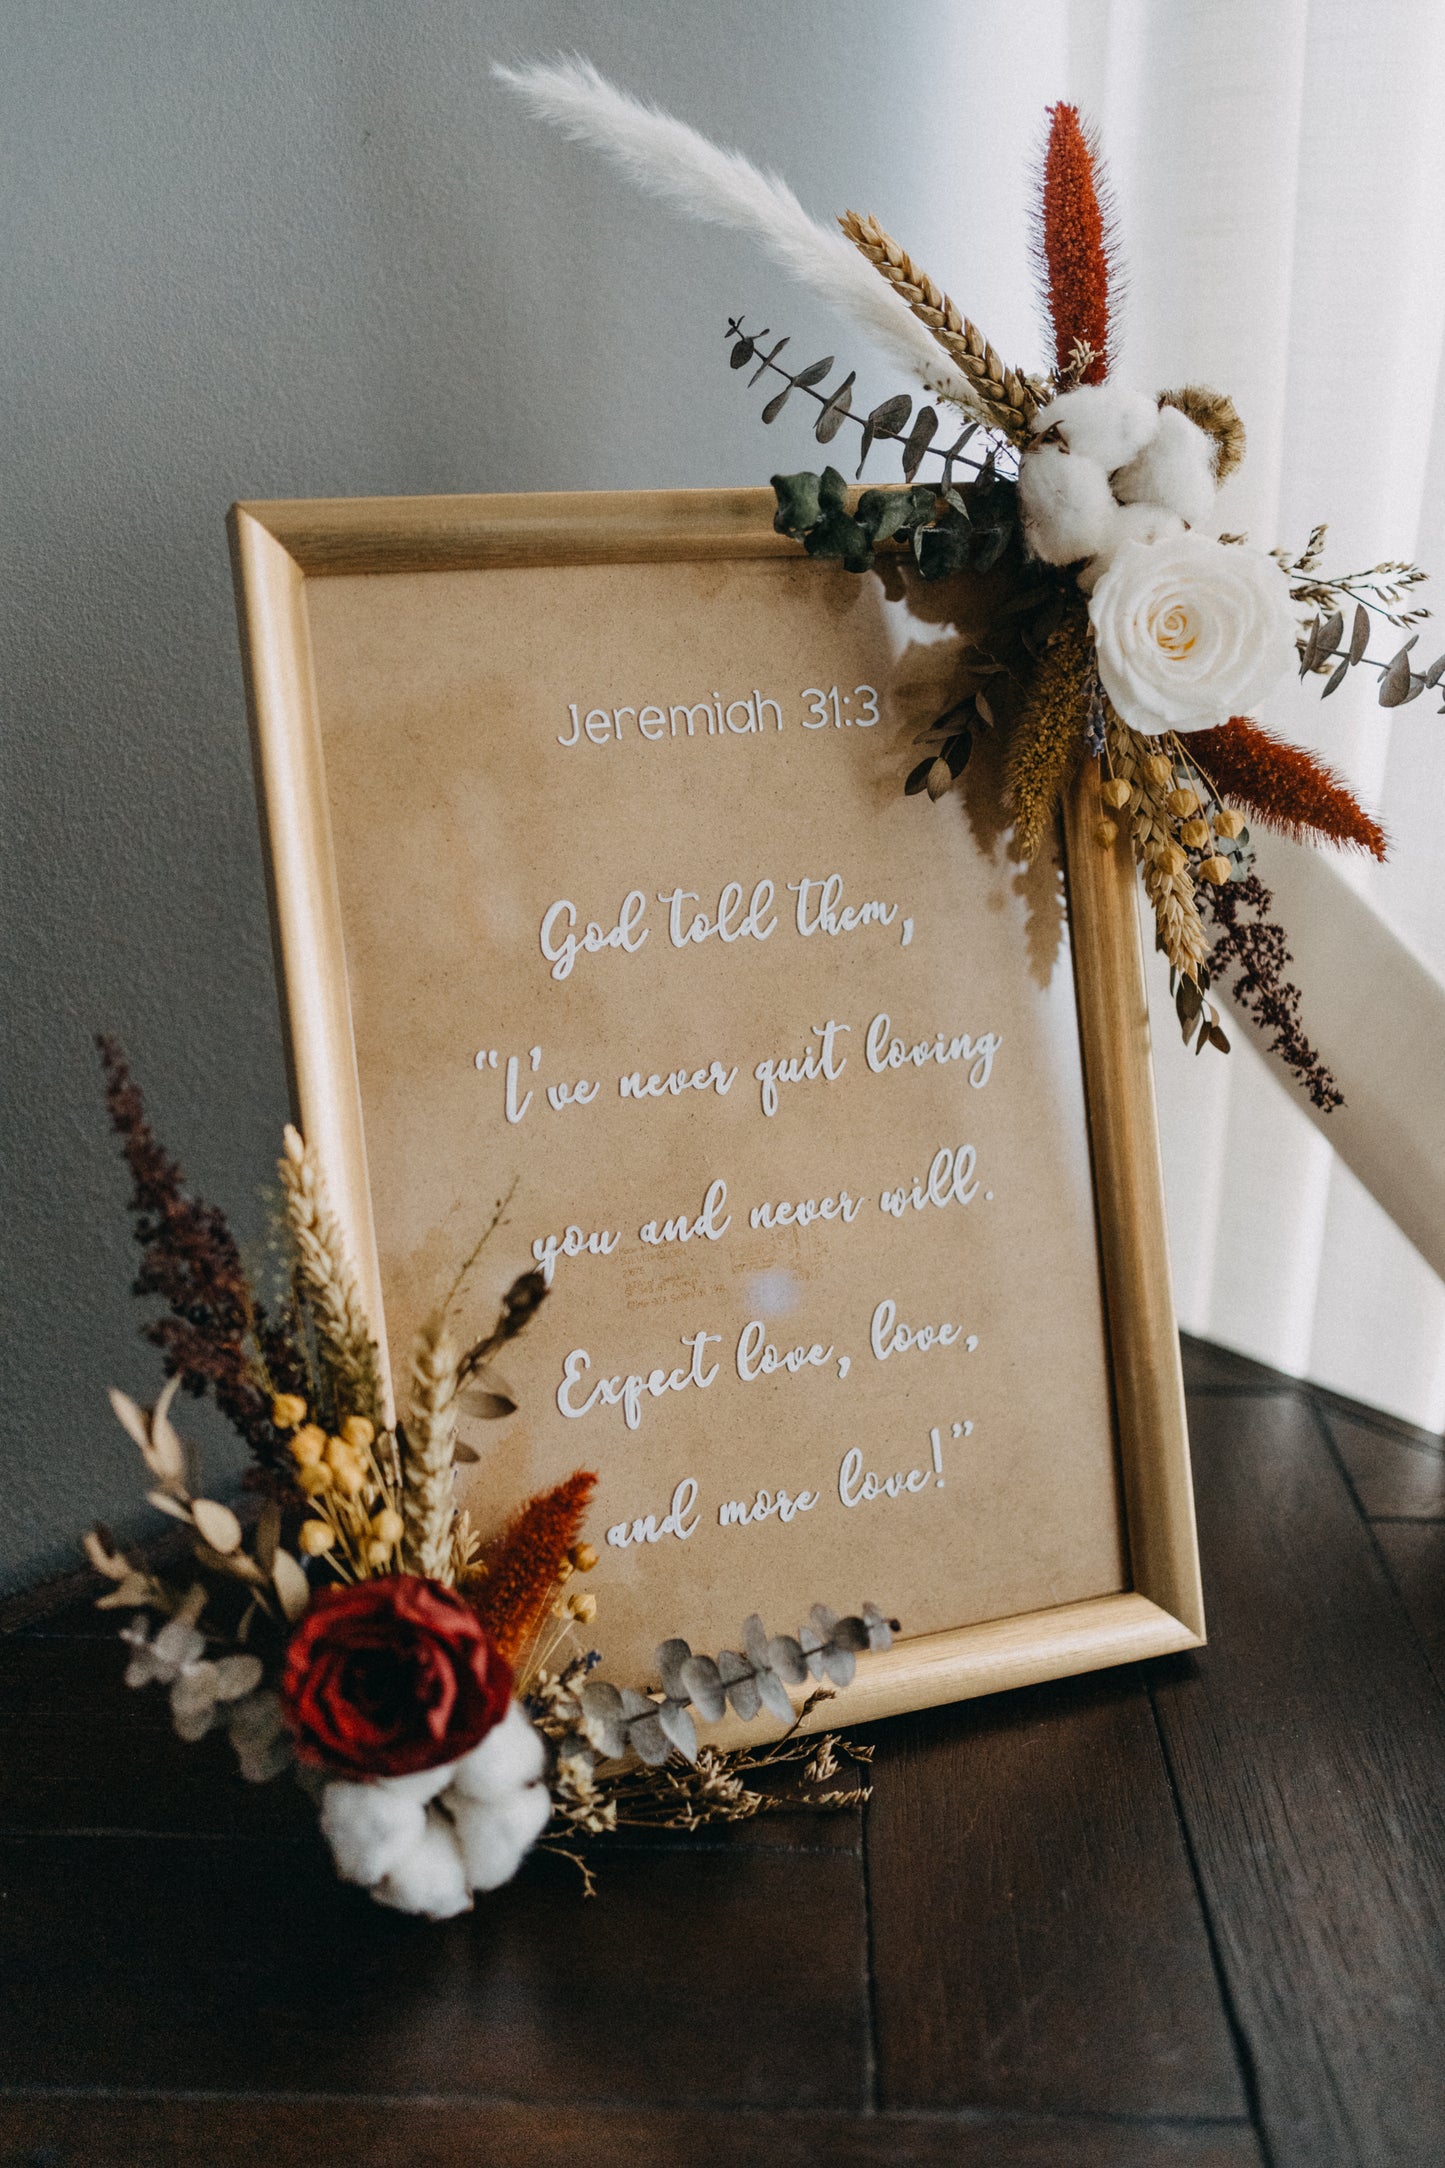 Jeremiah 31:3
God told them,
“I've never quit loving
you and never will.
Expect love, love,
and more love!”